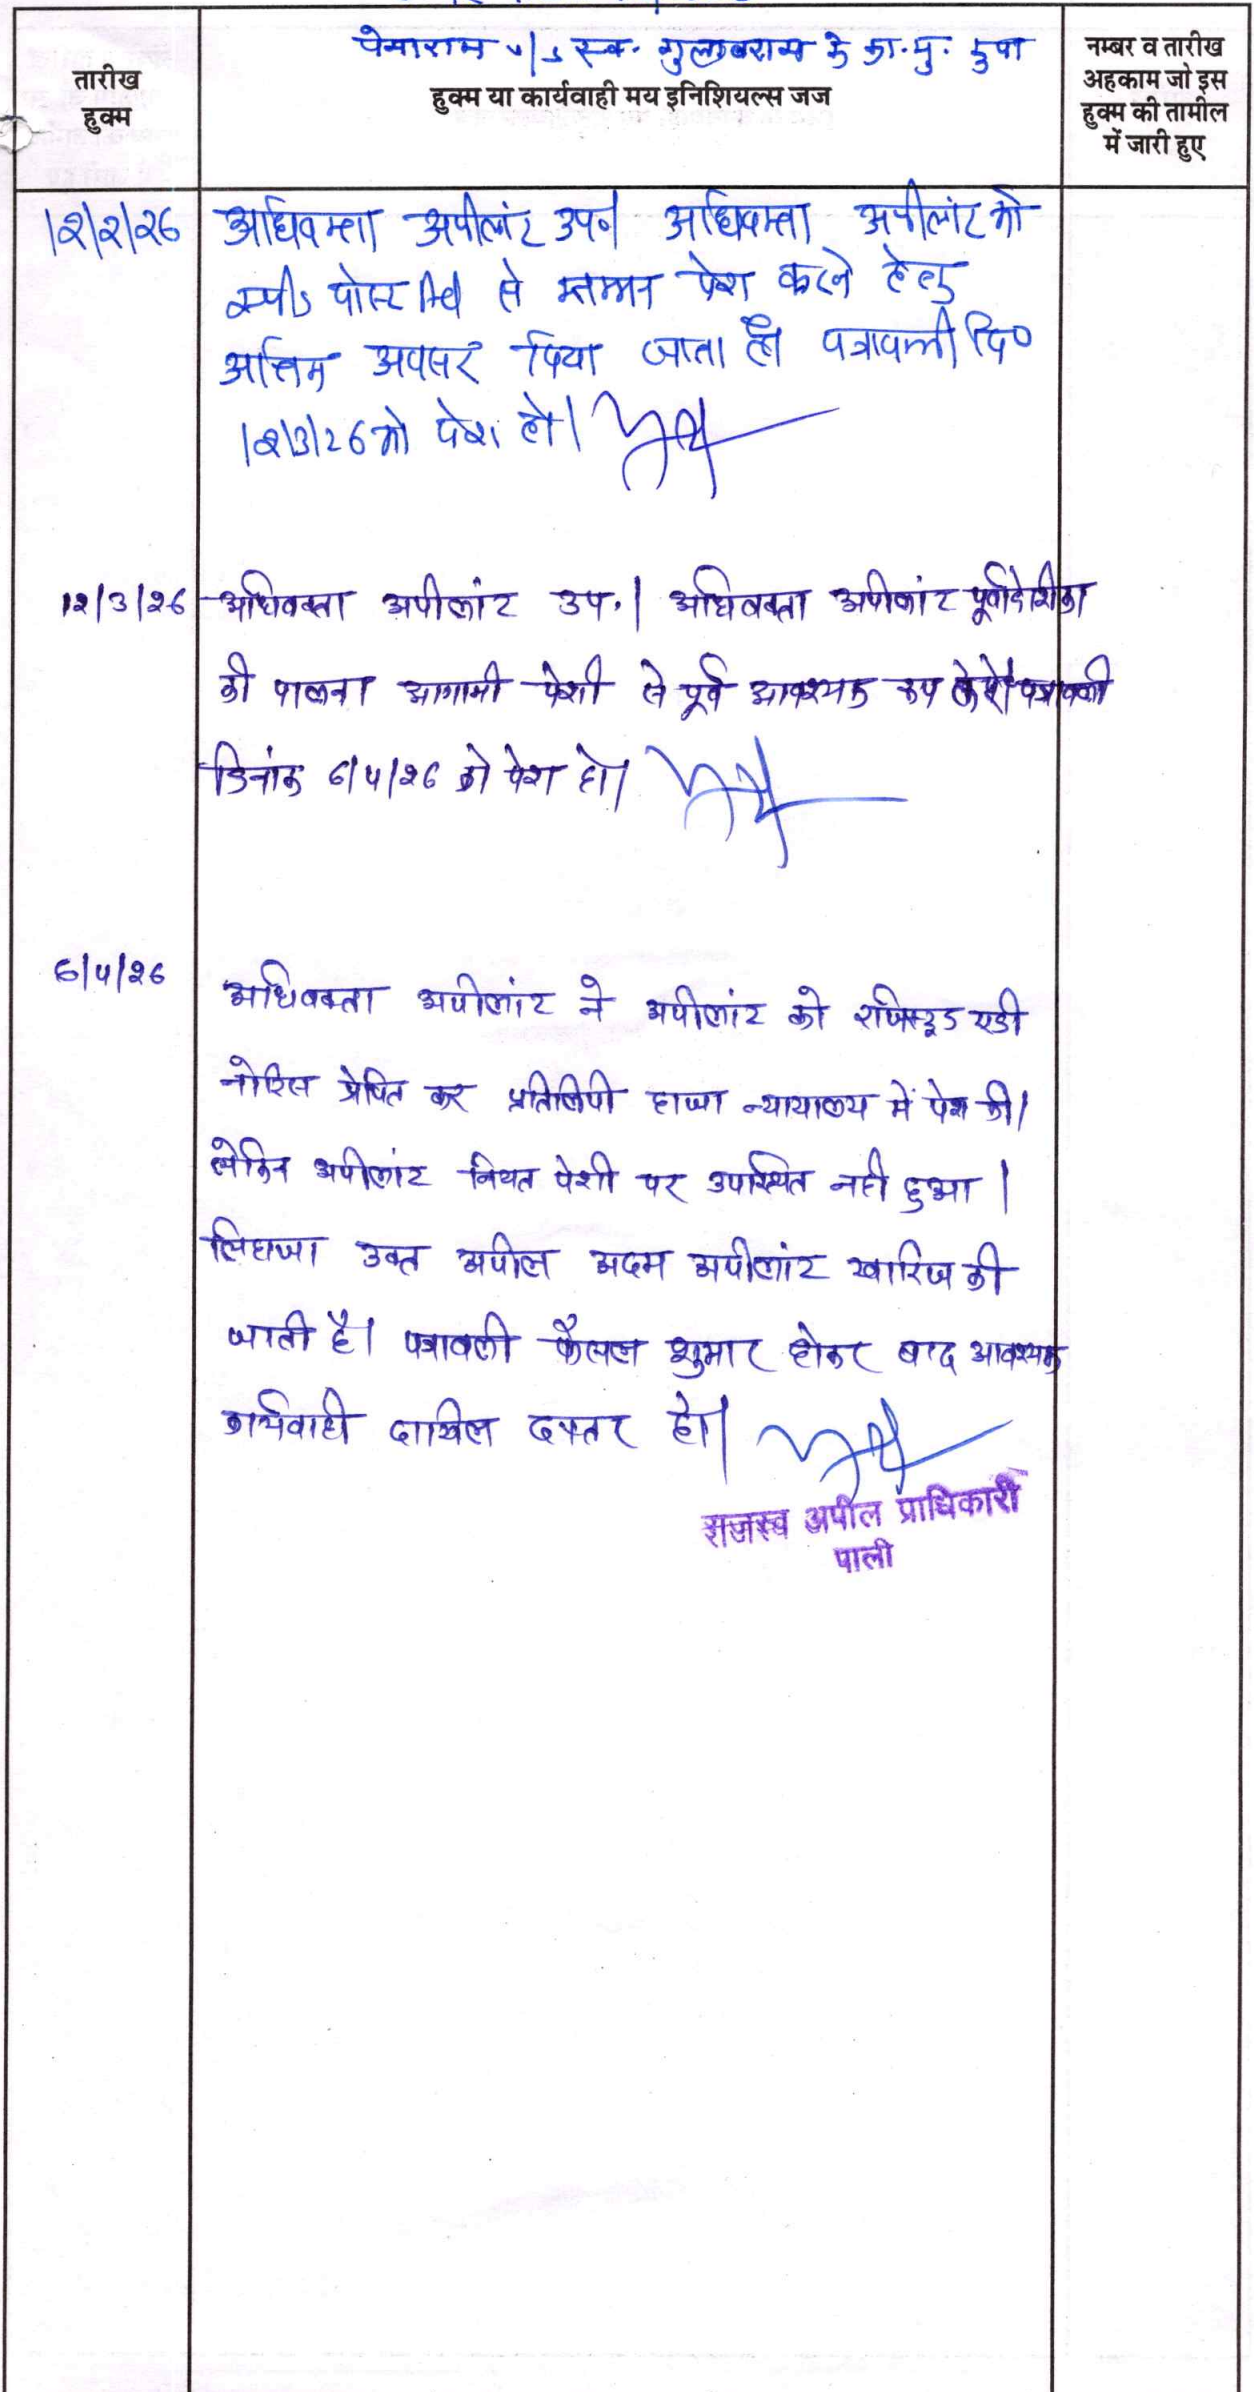 पेमाराम v/s स्व. गुलाबराम के का.मु.
तारीख
हुक्म
हुक्म या कार्यवाही मय इनिशियल्स जज
नम्बर व तारीख
अहकाम जो इस
हुक्म की तामील
में जारी हुए
12/2/26 अधिवक्ता अपीलांट उप०। अधिवक्ता अपीलांट को
स्पीड पोस्ट से सम्मन पेश करने हेतु
अन्तिम अवसर दिया जाता है। पत्रावली दि०
12/3/26 को पेश हो।
12/3/26 अधिवक्ता अपीलांट उप.। अधिवक्ता अपीलांट
की पालना आगामी पेशी से पूर्व आवश्यक रूप पत्रावली
दिनांक 6/4/26 को पेश हो।
6/4/26 अधिवक्ता अपीलांट ने अपीलांट को रजिस्ट्रड एडी
नोटिस प्रेषित कर प्रतिलिपी हाजा न्यायालय में पेश की।
लेकिन अपीलांट नियत पेशी पर उपस्थित नही हुआ।
लिहाजा उक्त अपील अदम अपीलांट खारिज की
जाती है। पत्रावली फैसल शुमार होकर बाद आवश्यक
कार्यवाही दाखिल दफ्तर हो।
राजस्व अपील प्राधिकारी
पाली